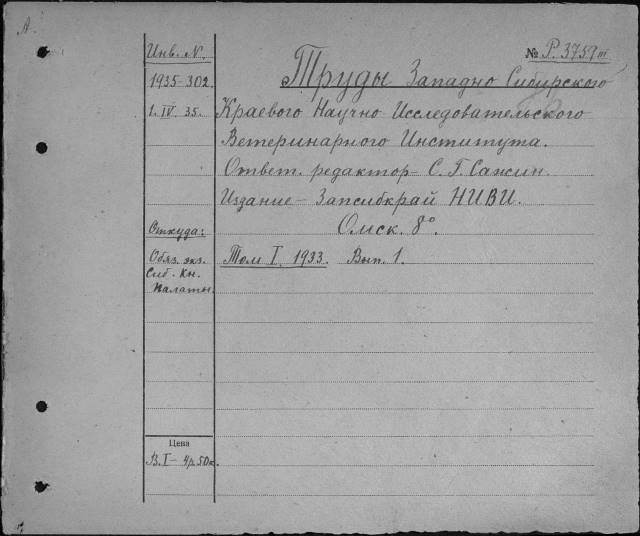 А.
Инв. N.
№ Р. 3759 III
1935-302
Труды Западно Сибирского
1. IV 35.
Краевого Научно Исследовательского
Ветеринарного Института.
Ответ. редактор - С. Г. Сансин.
Издание - Запсибкрай НИВИ.
Откуда:
Омск. 8°.
Обяз. экз.
Сиб. Кн.
Палаты.
Том I. 1933. Вып. 1.
Цена
В. I - 4р. 50к.